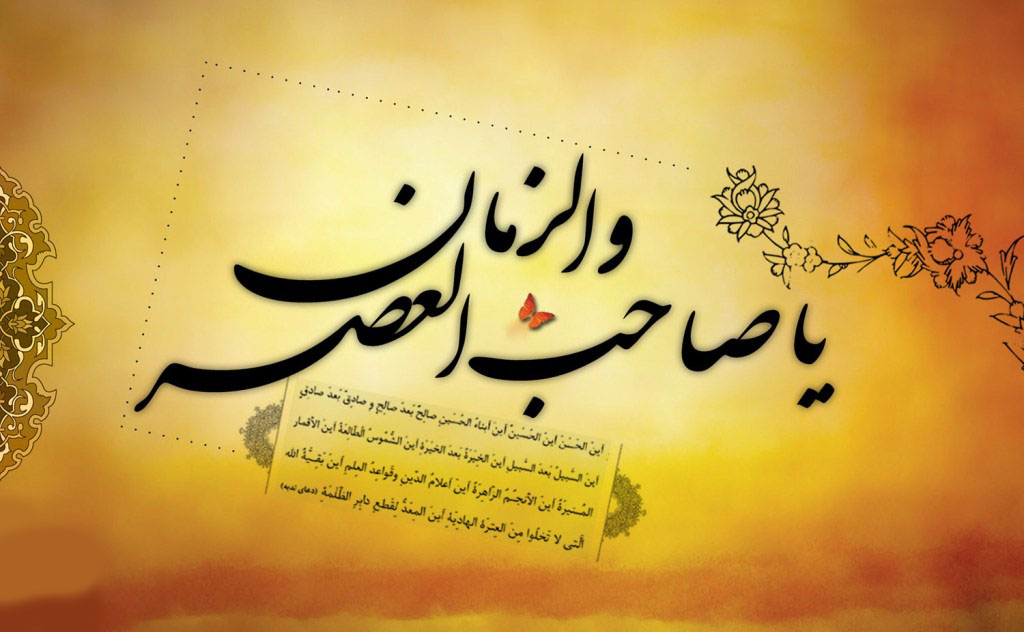 یا صاحب العصر
والزمان
أینَ الحَسَنُ أینَ الحُسَینُ أینَ أبناءُ الحُسَینِ صالِحٌ بَعدَ صالِحٍ و صادِقٌ بَعدَ صادِقٍ
أینَ السَّبیلُ بَعدَ السَّبیلِ أینَ الخِیَرَةُ بَعدَ الخِیَرَةِ أینَ الشُّمُوسُ الطّالِعَةُ أینَ الأقمارُ
المُنیرَةُ أینَ الأنجُمُ الزّاهِرَةُ أینَ أعلامُ الدّینِ وقَواعِدُ العِلمِ أینَ بَقِیَّةُ الله
الَّتی لا تَخلُوا مِنَ العِترَةِ الهادِیَةِ أینَ المُعَدُّ لِقَطعِ دابِرِ الظَّلَمَةِ (دعای ندبه)